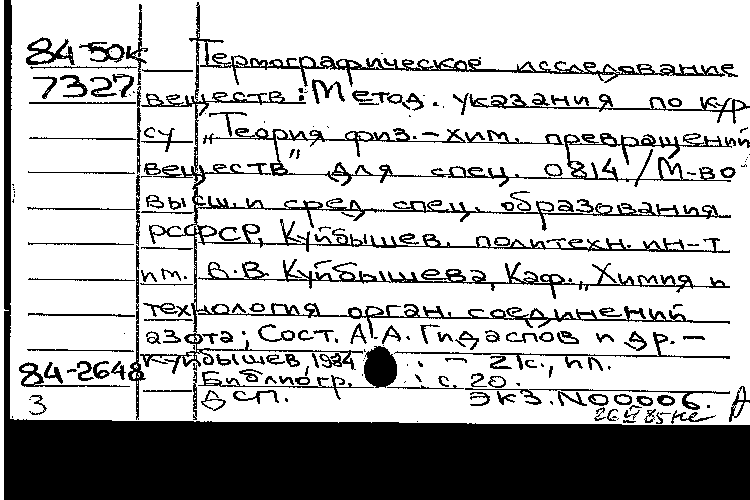 84-50к Термографическое исследование
7327 веществ: Метод. указания по кур
су „Теория физ.-хим. превращений
веществ" для спец. 0814/М-во
высш. и сред. спец. образования
РСФСР, Куйбышев. политехн. ин-т
им. В.В. Куйбышева, Каф. „Химия и
технология орган. соединений
азота; Сост. А.А. Гидаспов и др. –
Куйбышев, 1984 . – 21с., ил.
84-2648 Библиогр. : с. 20.
3 ДСП. Экз. N00006.